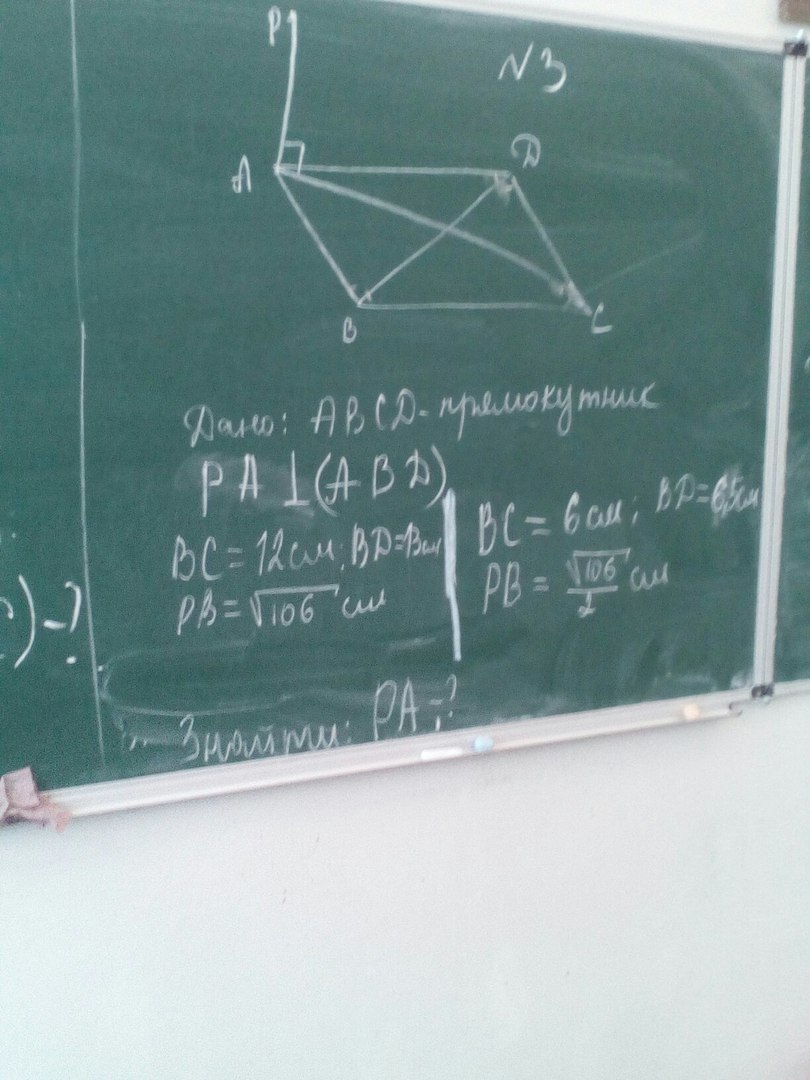 N3
P
A
D
B
C
Дано: ABCD - прямокутник
PA⊥(ABD)
BC = 12 см; BD = 13 см
PB = √106 см
BC = 6 см; BD = 6,5 см
PB = √106/2 см
Знайти: PA - ?
) - ?